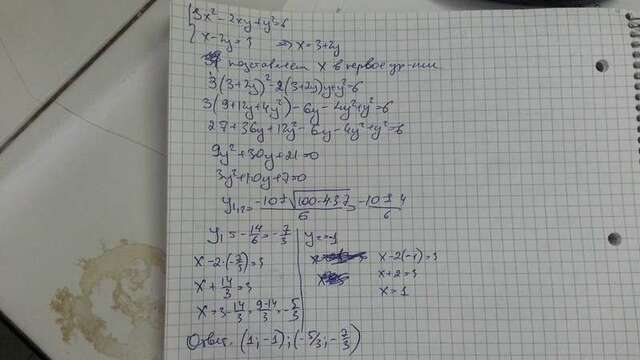 {3x²-2xy+y²=6
{x-2y=3 ⇒ x=3+2y
подставляем x в первое ур-ние
3(3+2y)²-2(3+2y)y+y²=6
3(9+12y+4y²)-6y-4y²+y²=6
27+36y+12y²-6y-4y²+y²=6
9y²+30y+21=0
3y²+10y+7=0
y₁,₂=(-10±√(100-4·3·7))/6=(-10±4)/6
y₁=-14/6=-7/3
x-2·(-7/3)=3
x+14/3=3
x=3-14/3=(9-14)/3=-5/3
y=-1
x-2(-1)=3
x+2=3
x=1
Ответ: (1;-1);(-5/3;-7/3)